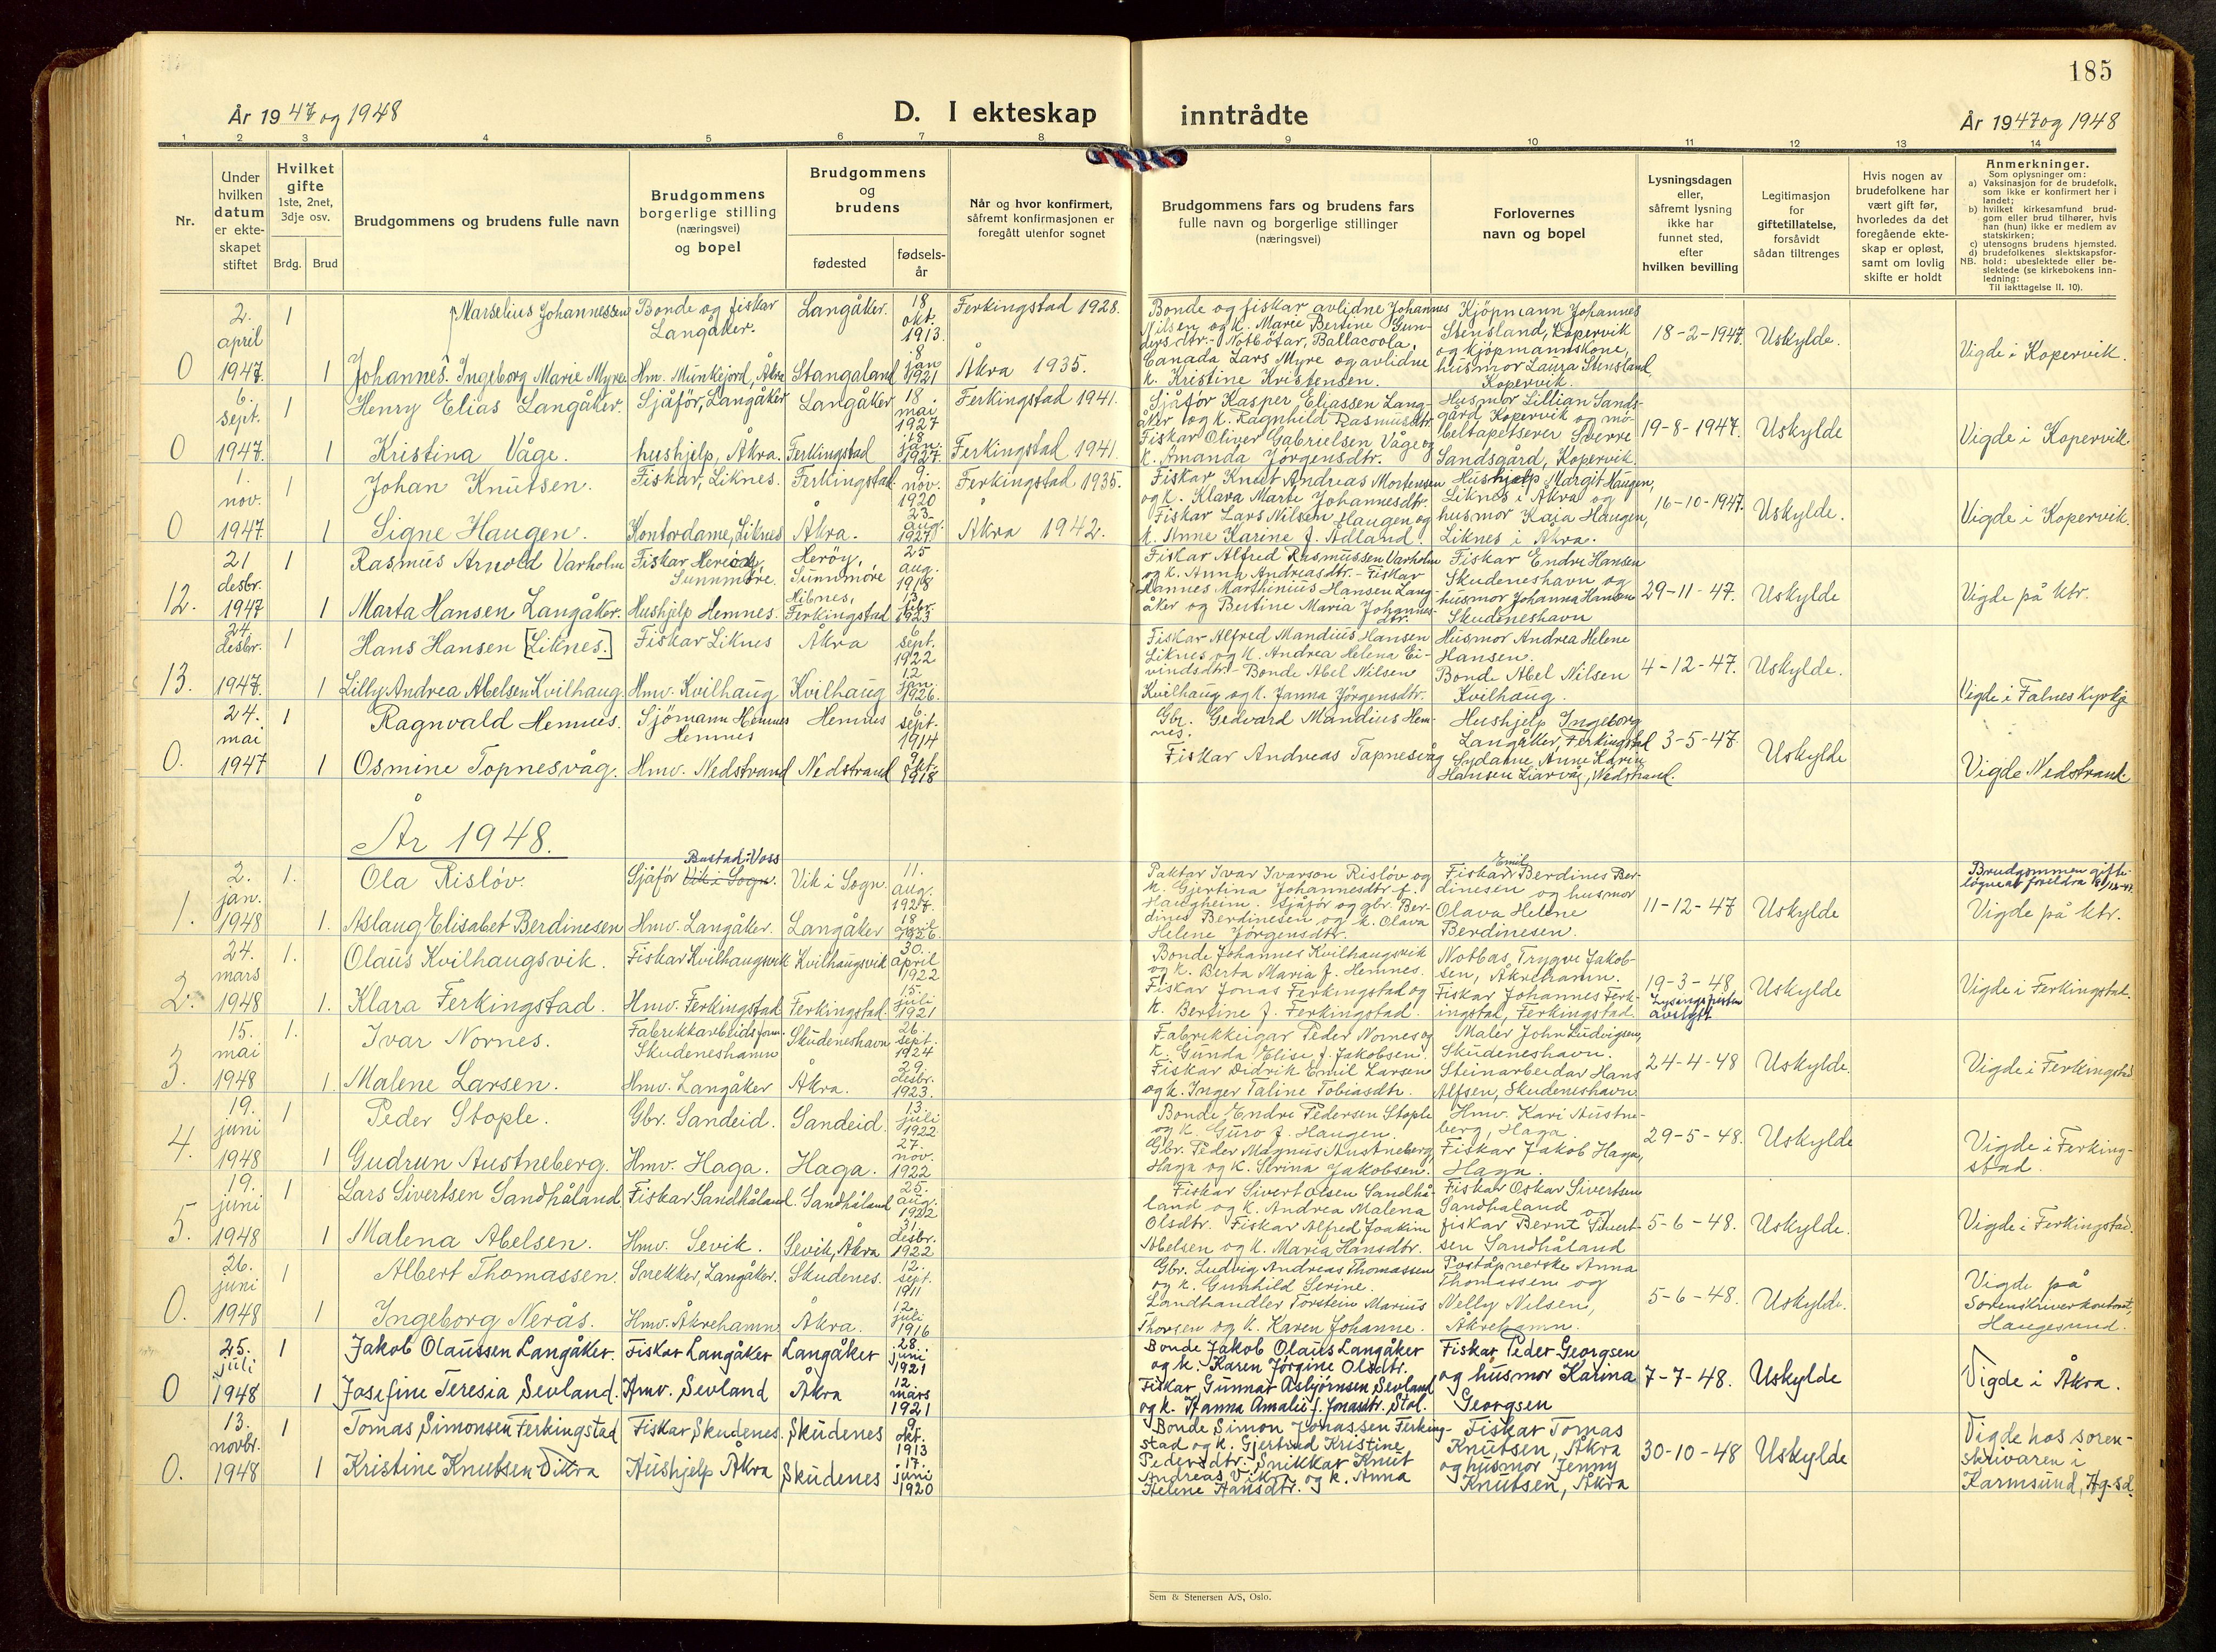 185
År 1947 og 1948
D. I ekteskap inntrådte
År 1947 og 1948
1 2 3 4 5 6 7 8 9 10 11 12 13 14
Nr.
Under hvilken datum er ekteskapet stiftet
Hvilket gifte 1ste, 2net, 3dje osv.
Brdg. Brud
Brudgommens og brudens fulle navn
Brudgommens borgerlige stilling (næringsvei) og bopel
Brudgommens og brudens
fødested
fødselsår
Når og hvor konfirmert, såfremt konfirmasjonen er foregått utenfor sognet
Brudgommens fars og brudens fars fulle navn og borgerlige stillinger (næringsvei)
Forlovernes navn og bopel
Lysningsdagen eller, såfremt lysning ikke har funnet sted, efter hvilken bevilling
Legitimasjon for giftetillatelse, forsåvidt sådan tiltrenges
Hvis nogen av brudefolkene har vært gift før, hvorledes da det foregående ekteskap er opløst, samt om lovlig skifte er holdt
Anmerkninger.
Som oplysninger om:
a) Vaksinasjon for de brudefolk, som ikke er konfirmert her i landet;
b) hvilket kirkesamfund brudgom eller brud tilhører, hvis han (hun) ikke er medlem av statskirken;
c) utensogns brudens hjemsted.
d) brudefolkenes slektskapsforhold: ubeslektede eller beslektede (se kirkebokens innledning:
NB. Til iakttagelse II. 10).
0 2. april 1947. 1 Marselius Johannessen Bonde og fiskar Langåker. Langåker. 18 okt. 1913. Ferkingstad 1928.
1 Johannes. Ingeborg Marie Myre Hm. Munkejord, Åkra Stangaland 8 jan 1921 Åkra 1935.
Bonde og fiskar avlidne Johannes
Nilsen og k. Marie Bertine Gun-
dersdtr. - Notbøtar, Ballacoola,
Canada Lars Myre og avlidne
k. Kristine Kristensen.
Kjöpmann Johannes
Stensland, Kopervik
og kjöpmannskone,
husmor Laura Stensland,
Kopervik.
18-2-1947. Uskylde. Vigde i Kopervik.
0 6. sept. 1947. 1 Henry Elias Langåker. Sjåfór, Langåker Langåker 18. mai 1927 Ferkingstad 1941.
1 Kristina Våge. hushjelp, Åkra. Ferkingstad 18. jan. 1927. Ferkingstad 1941.
Sjåfór Kasper Eliassen Lang-
åker og k. Ragnhild Rasmusdtr.
Fiskar Oliver Gabrielsen Våge og
k. Amanda Jörgensdtr.
Husmor Lillian Sands-
gård Kopervik og mö-
beltapetserer Sverre
Sandsgård, Kopervik.
19-8-1947. Uskylde Vigde i Kopervik
0 1. nov. 1947. 1 Johan Knutsen. Fiskar, Liknes. Ferkingstad 9. nov. 1920 Ferkingstad 1935.
1 Signe Haugen. Kontordame, Liknes Åkra. 23. aug. 1927 Åkra 1942.
Fiskar Knut Andreas Mortensen
og k. Klara Marte Johannesdtr.
Fiskar Lars Nilsen Haugen og
k. Anne Karine f. Ådland.
Hushjelp Margit Haugen,
Liknes i Åkra og
husmor Kaja Haugen,
Liknes i Åkra.
16-10-1947. Uskylde. Vigde i Kopervik.
12. 21 desbr. 1947 1 Rasmus Arnold Varholm Fiskar Heröy, Sunnmöre. Heröy, Sunnmöre 25 aug. 1918
1 Marta Hansen Langåker. Hushjelp Hemnes. Hibnes, Ferkingstad 13. febr. 1923
Fiskar Alfred Rasmussen Varholm
og k. Anna Andreasdtr. - Fiskar
Hannes Marthinius Hansen Lang-
åker og Bertine Maria Johannes-
dtr.
Fiskar Endre Hansen
Skudeneshavn og
husmor Johanna Hansen
Skudeneshavn
29-11-47. Uskylde Vigde på ktr.
13. 24. desbr. 1947. 1 Hans Hansen [Liknes.] Fiskar Liknes Åkra 6 sept. 1922
1 Lilly Andrea Abelsen Kvilhaug. Hmv. Kvilhaug Kvilhaug 12 jan. 1926.
Fiskar Alfred Mandius Hansen
Liknes og k. Andrea Helena Ei-
vindsdtr. - Bonde Abel Nilsen
Kvilhaug og k. Janna Jörgensdtr.
Husmor Andrea Helene
Hansen.
Bonde Abel Nilsen
Kvilhaug.
4-12-47. Uskylde. Vigde i Falnes kyrkje
0. 24. mai 1947 1 Ragnvald Hemnes. Sjömann Hemnes Hemnes Hemnes 6 sept. 1914
1 Osmine Topnesvåg. Hmv. Nedstrand Nedstrand okt. 1918
Gbr. Gedvard Mandius Hem-
nes.
Fiskar Andreas Tapnesvåg
Hushjelp Ingeborg
Langåker, Ferkingstad
Sydame Anne Karin
Hansen Liarvåg, Nedstrand.
3-5-47. Uskylde Vigde Nedstrand.
År 1948.
1. 2. jan. 1948 1. Ola Rislöv. Sjåför Vik i Sogn. Bustad: Voss Vik i Sogn. 11. aug. 1927.
1. Aslaug Elisabet Berdinesen Hmv. Langåker. Langåker 18 april 1926.
Paktar Ivar Ivarson Rislöv og
k. Gjertina Johannesdtr. f.
Haugheim. Sjåfør og gbr. Ber-
dines Berdinesen og k. Olava
Helene Jörgensdtr.
Emil
Fiskar Berdines Ber-
dinesen og husmor
Olava Helene
Berdinesen.
11-12-47 Uskylde
Brudgommen gifte-
løyve av foreldra
Vigde på ktr.
2. 24. mars 1948 1. Olaus Kvilhaugsvik. Fiskar Kvilhaugsvik Kvilhaugsvik 30. april 1922
1. Klara Ferkingstad. Hmv. Ferkingstad Ferkingstad. 15. juli 1921
Bonde Johannes Kvilhaugsvik
og k. Berta Maria f. Hemnes.
Fiskar Jonas Ferkingstad og
k. Bertine f. Ferkingstad.
Notbas, Trygve Jakob-
sen, Åkrehamn.
Fiskar Johannes Ferk-
ingstad, Ferkingstad.
19-3-48. Lysingsfristen avstytt Uskylde Vigde i Ferkingstad.
3. 15. mai 1948 1. Ivar Nornes. Fabrikkarbeidsform. Skudeneshamn Skudeneshavn 26. sept. 1924
1. Malene Larsen. Hmv. Langåker Åkra. 29. desbr. 1923.
Fabrikkeigar Peder Nornes og
k. Gunda Elise f. Jakobsen.
Fiskar Didrik Emil Larsen
og k. Inger Taline Tobiasdtr.
Maler John Ludvigsen,
Skudeneshavn.
Steinarbeidar Hans
Alfsen, Skudeneshavn
24-4-48 Uskylde. Vigde i Ferkingstad
4. 19. juni 1948 1 Peder Stople. Gbr. Sandeid. Sandeid. 13. juli 1922
1 Gudrun Austneberg. Hmv. Haga. Haga. 27. nov. 1922
Bonde Endre Pedersen Stople
og k. Guro f. Haugen.
Gbr. Peder Magnus Austneberg
Haga og k. Serina Jakobsen.
Hmv. Kari Austne-
berg, Haga
Fiskar Jakob Haga,
Haga.
29-5-48. Uskylde Vigde i Ferking-
stad.
5. 19. juni 1948 1 Lars Sivertsen Sandhåland Fiskar Sandhåland. Sandhåland 25. aug. 1922
1 Malena Abelsen. Hmv. Sevik. Sevik, Åkra 31. desbr. 1922
Fiskar Sivert Olsen Sandhå-
land og k. Andrea Malena
Olsdtr. Fiskar Alfred Joakim
Abelsen og k. Maria Hansdtr.
Fiskar Oskar Sivertsen
Sandhåland og
fiskar Bernt Sivert-
sen Sandhåland
5-6-48. Uskylde. Vigde i Ferkingstad.
0. 26. juni 1948 1 Albert Thomassen. Snekker, Langåker. Skudenes. 12. sept. 1911
1 Ingeborg Nerås. Hmv. Åkrehamn Åkra. 12. juli 1916
Gbr. Ludvig Andreas Thomassen
og k. Gunhild Serine.
Landhandler Torstein Marius
Thorsen og k. Karen Johanne.
Poståpnerske Anna
Thomassen og
Nelly Nilsen,
Åkrehamn.
5-6-48. Uskylde. Vigde på
Sorenskriverkontoret,
Haugesund.
0 25. juli 1948 1 Jakob Olaussen Langåker. Fiskar Langåker Langåker 28. juni 1921
1 Josefine Teresia Sevland. Hmv. Sevland Åkra 12. mars 1921
Bonde Jakob Olaus Langåker
og k. Karen Jørgine Olsdtr.
Fiskar Gunnar Asbjörnsen Sevland
og k. Hanna Amalie f. Jonasdtr. Stol.
Fiskar Peder Georgsen
og husmor Karina
Georgsen
7-7-48. Uskylde Vigde i Åkra.
0. 13. novbr. 1948 1 Tomas Simonsen Ferkingstad Fiskar Skudenes. Skudenes 9. okt. 1913
1 Kristine Knutsen Vikra Hushjelp Åkra Skudenes 17. juni 1920
Bonde Simon Jonassen Ferking-
stad og k. Gjertrud Kristine
Pedersdtr. Snikkar Knut
Andreas Vikra og k. Anna
Helene Hansdtr.
Fiskar Tomas
Knutsen, Åkra
og husmor Jenny
Knutsen, Åkra
30-10-48 Uskylde Vigde hos soren-
skrivaren i
Karmsund, Hg.sd.
Sem & Stenersen A/S, Oslo.